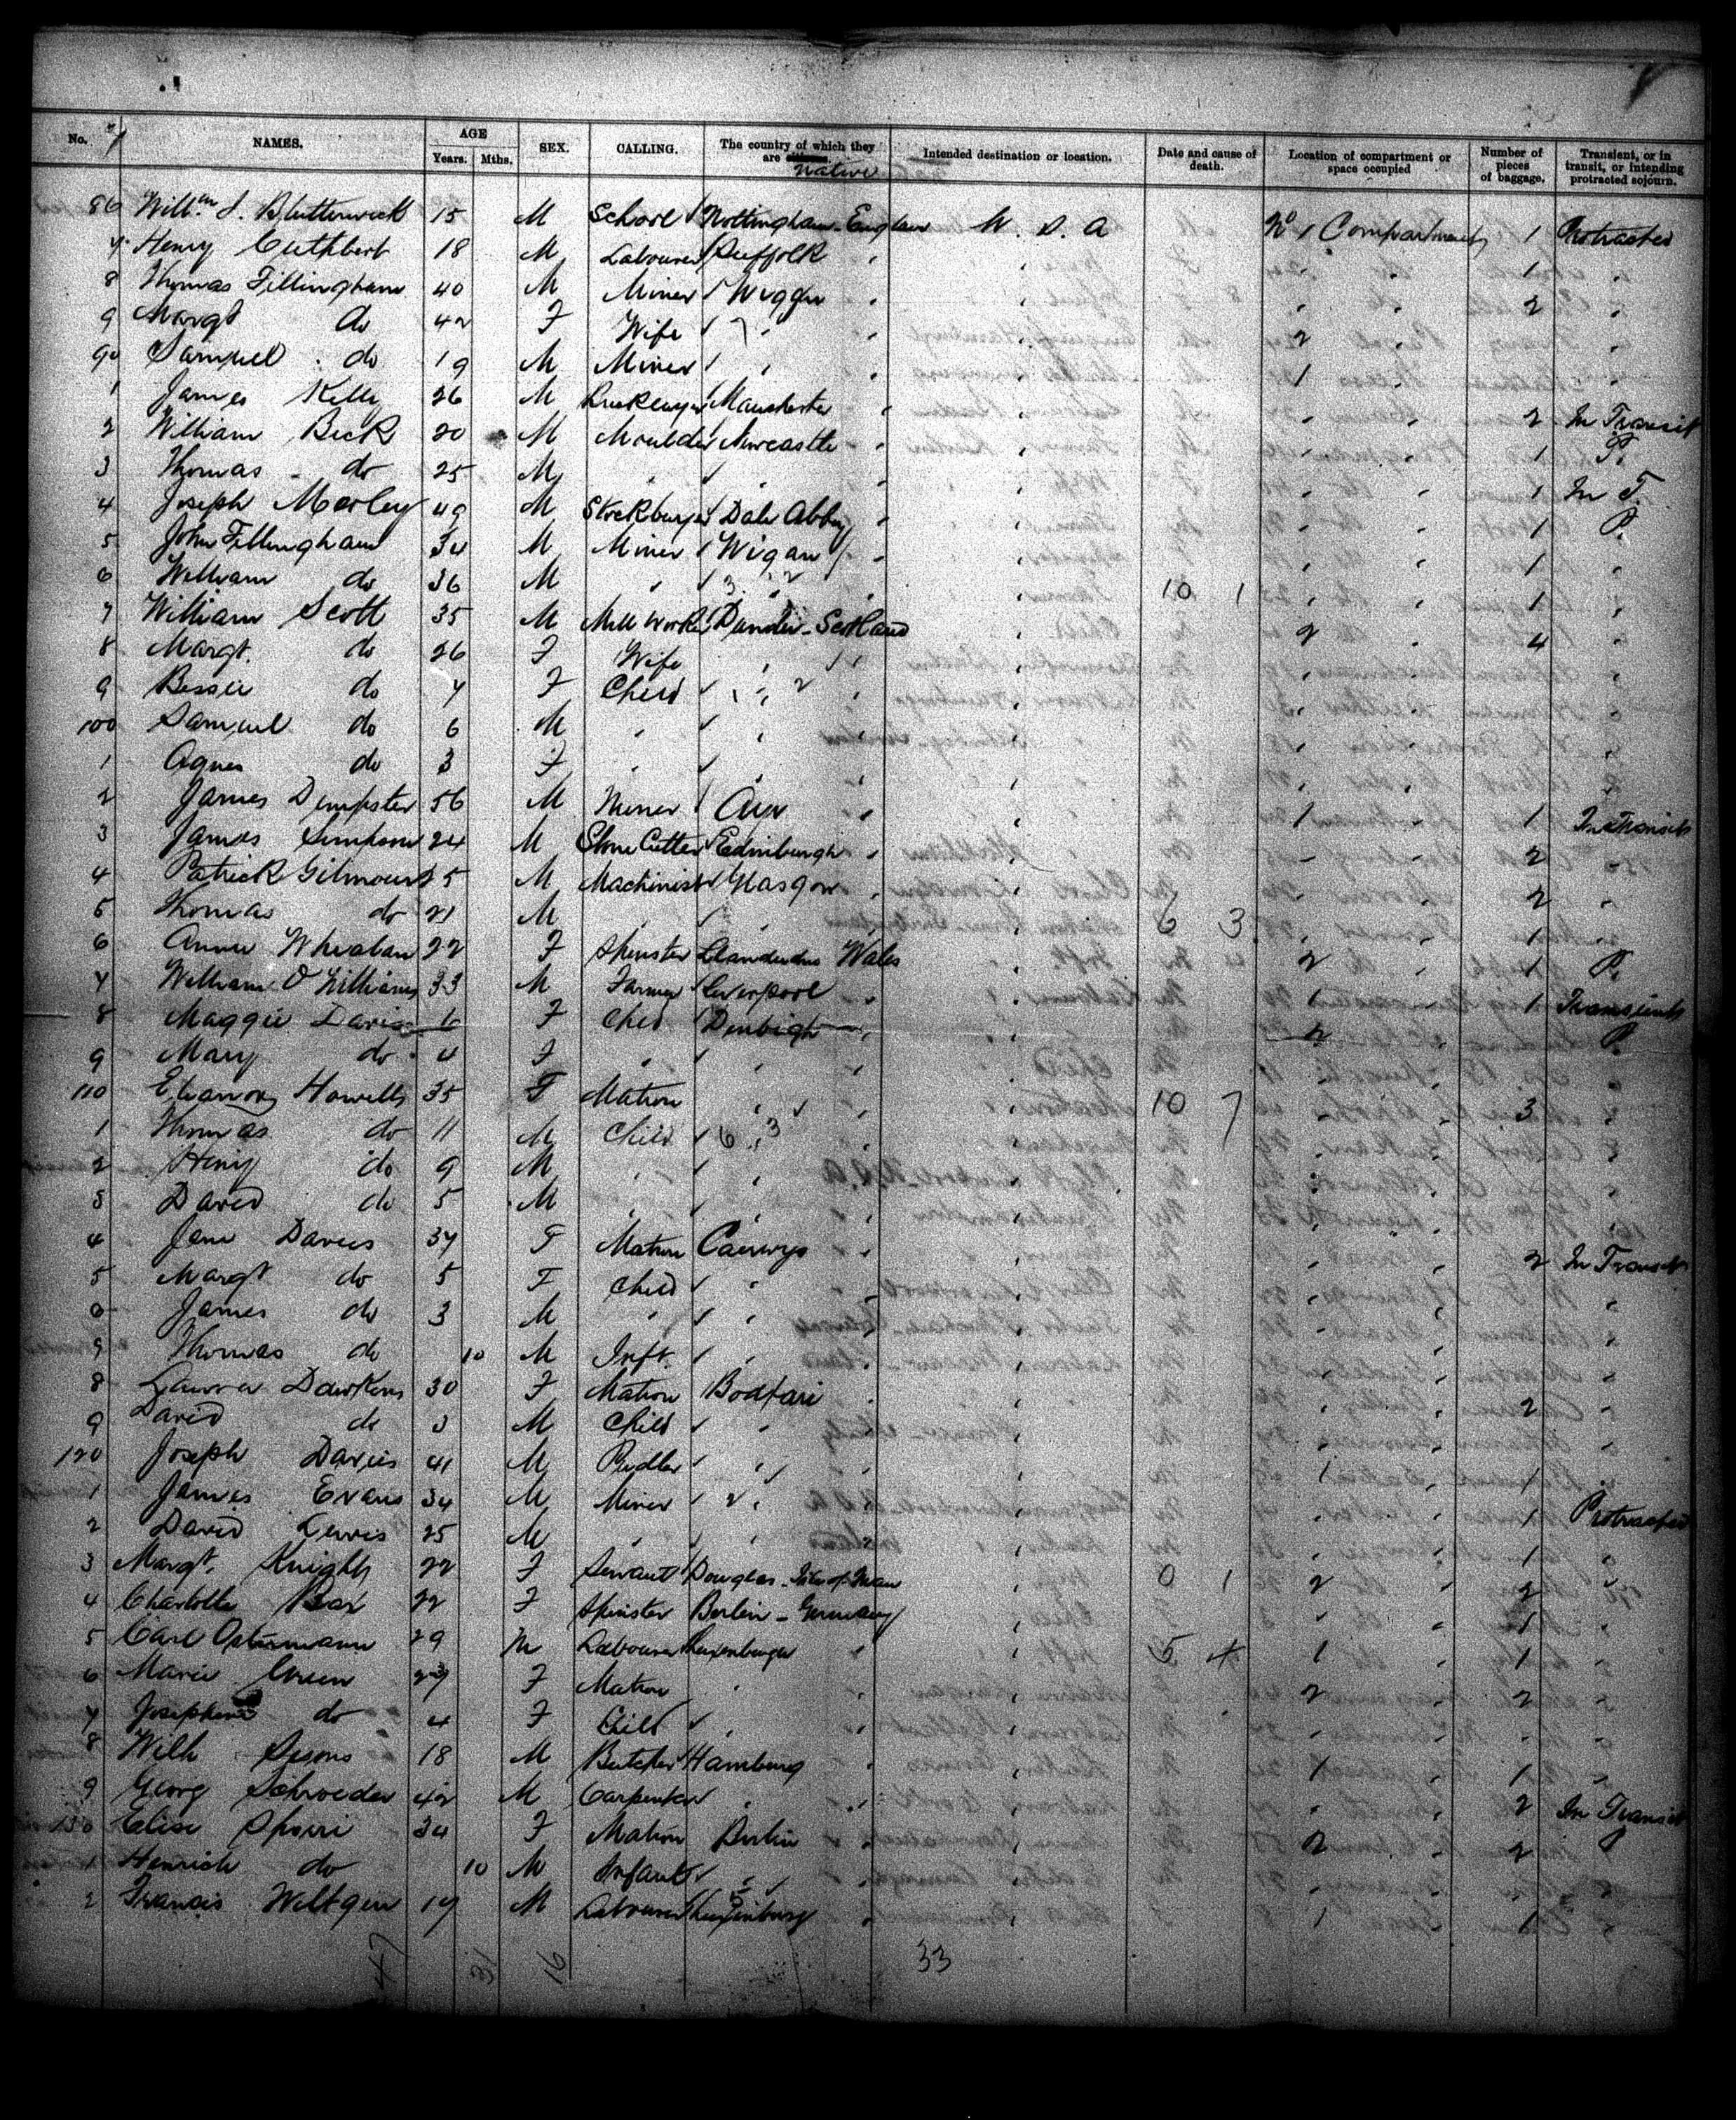 No. NAMES. AGE Years. Mths. SEX. CALLING. The country of which they are citizens. Native Intended destination or location. Date and cause of death. Location of compartment or space occupied Number of pieces of baggage. Transient, or in transit, or intending protracted sojourn.
86 Willm J. Blutterwick 15 M School Nottingham-England U. S. A No 1 Compartment 1 Protracted
7 Henry Cuthbert 18 M Labourer Suffolk " " " " 1 "
8 Thomas Fillingham 40 M Miner Wiggan " " " " 2 "
9 Margt do 42 F Wife " " " 2 " "
90 Samuel do 19 M Miner " " " 1 " "
1 James Kelly 26 M Bricklayer Manchester " " " " 2 In Transit
2 William Beck 20 M Moulder Newcastle " " " " 1 P.
3 Thomas do 25 M " " " " " " 1 In T.
4 Joseph Morley 49 M Stockbuyer Dale Abbey " " " " 1 P.
5 John Fillingham 34 M Miner Wigan " " " " 1 "
6 William do 36 M " " 3 2 " 10 1 " " 1 "
7 William Scott 35 M Mill Worker Dundee-Scotland " 2 " 4 "
8 Margt. do 26 F Wife " " " " "
9 Bessie do 7 F Child " 2 " " " "
100 Samuel do 6 M " " " " " "
1 Agnes do 3 F " " " " " "
2 James Dempster 56 M Miner Ayr " " 1 " 1 In Transit
3 James Simpson 24 M Stone Cutter Edinburgh " " " " 2 "
4 Patrick Gilmour 25 M Machinist Glasgow " " " " 2 "
5 Thomas do 21 M " " " 6 3 " " 1 "
6 Annie Whealan 22 F Spinster Llandudno Wales " 2 " 1 P.
7 William O Williams 33 M Farmer Liverpool " " 1 " 1 Transient
8 Maggie Davies 6 F Child Denbigh " " 2 " P.
9 Mary do 4 F " " " " " "
110 Eleanor Howells 35 F Matron " " " 10 7 " " 3 "
1 Thomas do 11 M Child 6 3 " " " " "
2 Henry do 9 M " " " " " "
3 David do 5 M " " " " " "
4 Jane Davies 37 F Matron Caerwys " " " " 2 In Transit
5 Margt do 5 F Child " " " " "
6 James do 3 M " " " " " "
7 Thomas do 10 M Inft. " " " " "
8 Laura Dawkins 30 F Matron Bodfari " " " " 2 "
9 David do 3 M Child " " " " "
120 Joseph Davies 41 M Pudler " " " 1 " 1 "
1 James Evans 34 M Miner 2 " " " " 1 Protracted
2 David Lewis 25 M " " " " " " 1 "
3 Margt. Knights 22 F Servant Douglas-Isle of Man " 0 1 2 " 2 "
4 Charlotte Bax 22 F Spinster Berlin-Germany " " " 1 "
5 Carl Ostermann 29 M Labourer Luxenburgh " " 5 4 1 " 1 "
6 Marie Green 27 F Matron " " " 2 " 2 "
7 Josephine do 4 F Child " " " " " "
8 Wilh Sisons 18 M Butcher Hamburg " " 1 " 1 "
9 Georg Schroeder 42 M Carpenter " " " " " 2 In Transit
130 Elise Speri 34 F Matron Berlin " " 2 " 2 P
1 Henrich do 10 M Infant " " " " "
2 Francis Weltgen 17 M Labourer Luxenburg " " 1 " 1 "
47 16 33